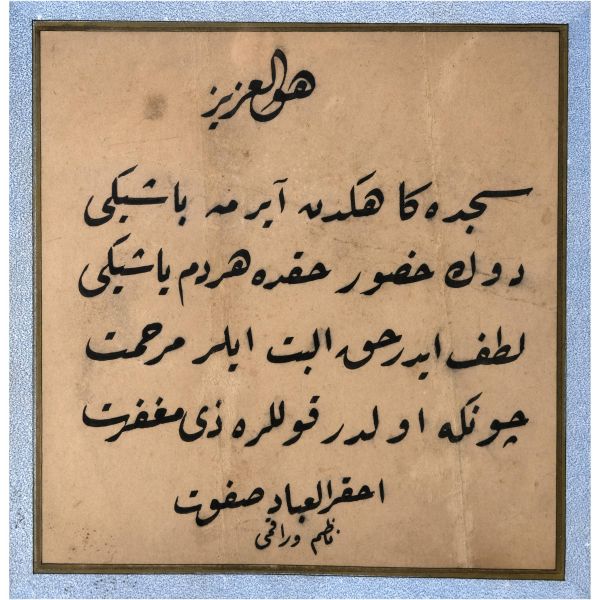 هو العزيز
سجده كاهكدن آيرمه باشيكى
دوك حضور حقده هردم ياشيكى
لطف ايدر حق البت ايلر مرحمت
چونكه اولدر قوللره ذى مغفرت
احقر العباد صفوت
ناظم وراقمى